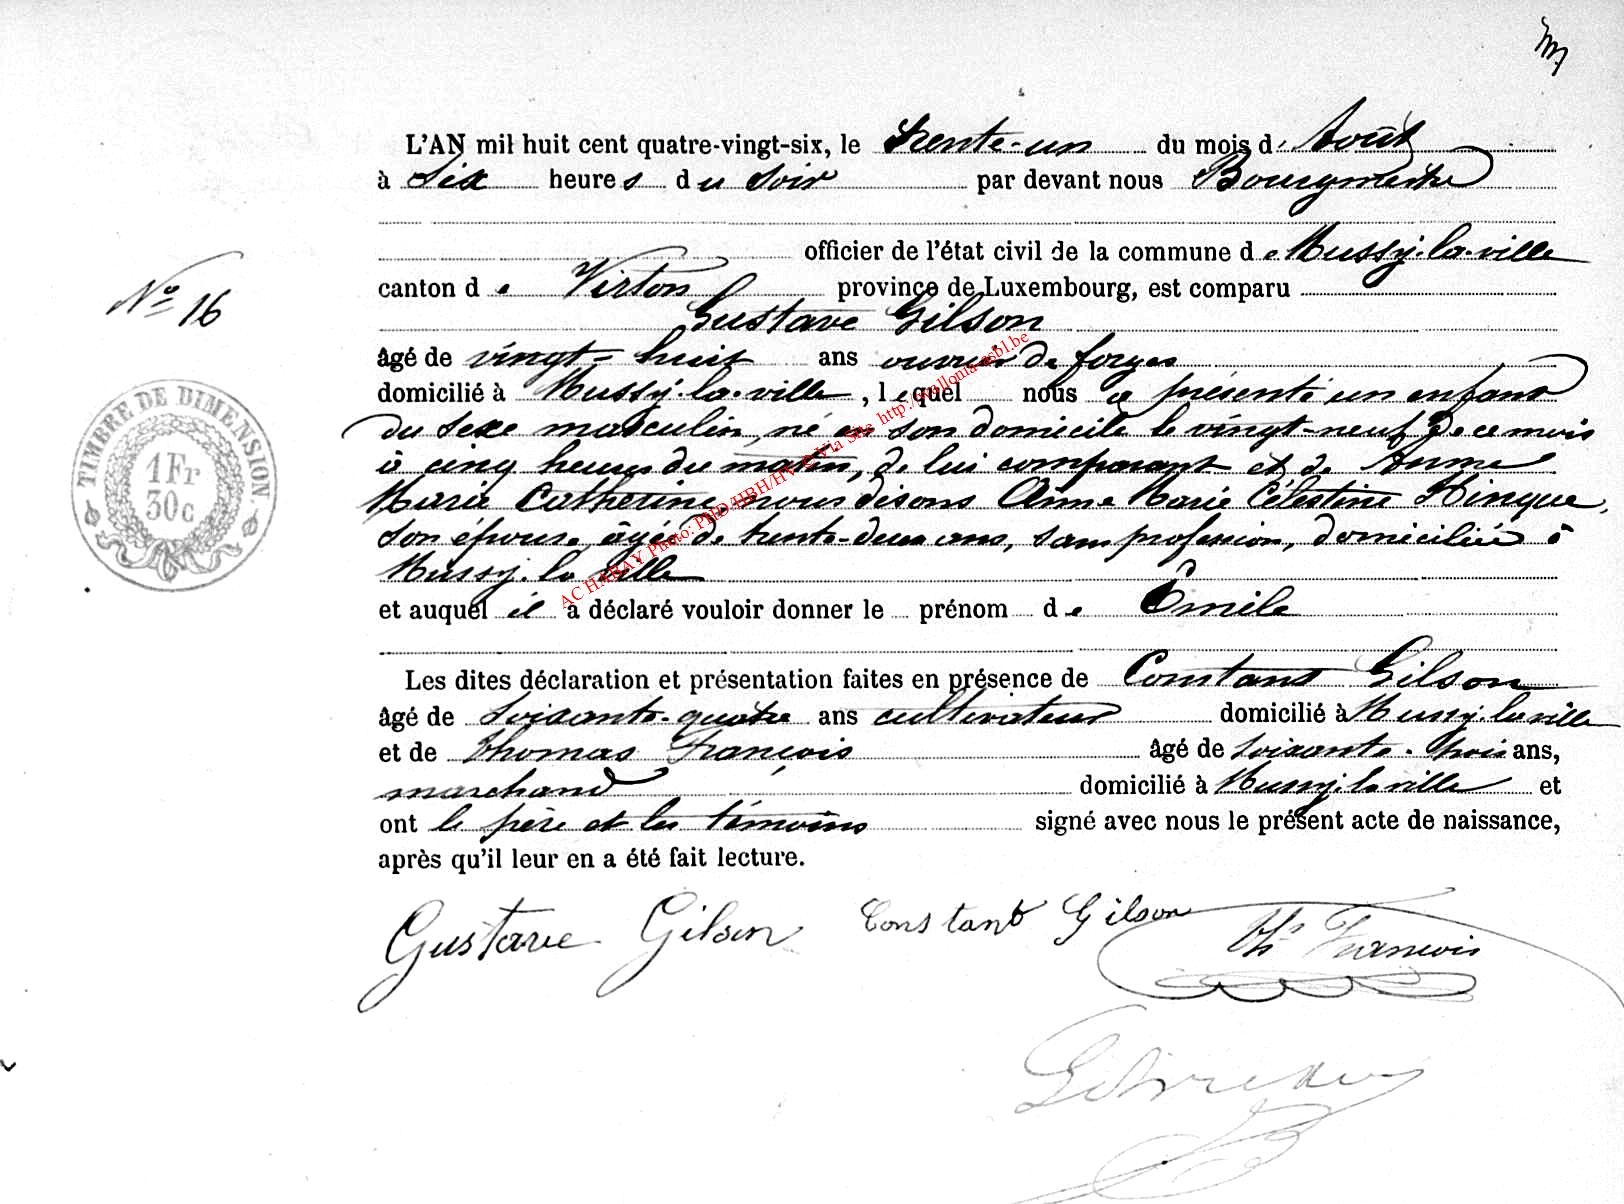 L'AN mil huit cent quatre-vingt-six, le trente-un du mois d' Août
à six heures du soir par devant nous Bourgmestre
officier de l'état civil de la commune de Mussy-la-ville
N° 16
canton de Virton province de Luxembourg, est comparu
Gustave Gilson
âgé de vingt-huit ans ouvrier de forges
domicilié à Mussy-la-ville, lequel nous a présenté un enfant
du sexe masculin, né en son domicile le vingt-neuf de ce mois
à cinq heures du matin, de lui comparant et de Anne
Marie Catherine nous disons Anne Marie Célestine Hinque,
son épouse âgée de trente-deux ans, sans profession, domiciliée à
Mussy-la-ville
et auquel il a déclaré vouloir donner le prénom de Emile
Les dites déclaration et présentation faites en présence de Constant Gilson
âgé de soixante-quatre ans cultivateur domicilié à Mussy-la-ville
et de Thomas François âgé de soixante-trois ans,
marchand domicilié à Mussy-la-ville et
ont le père et les témoins signé avec nous le présent acte de naissance,
après qu'il leur en a été fait lecture.
Gustave Gilson Constant Gilson Th. François
TIMBRE DE DIMENSION
1 Fr
30 c
AC HABAY Photo: PHD/HBH/HV © Via Site http://wallonia-asbl.be